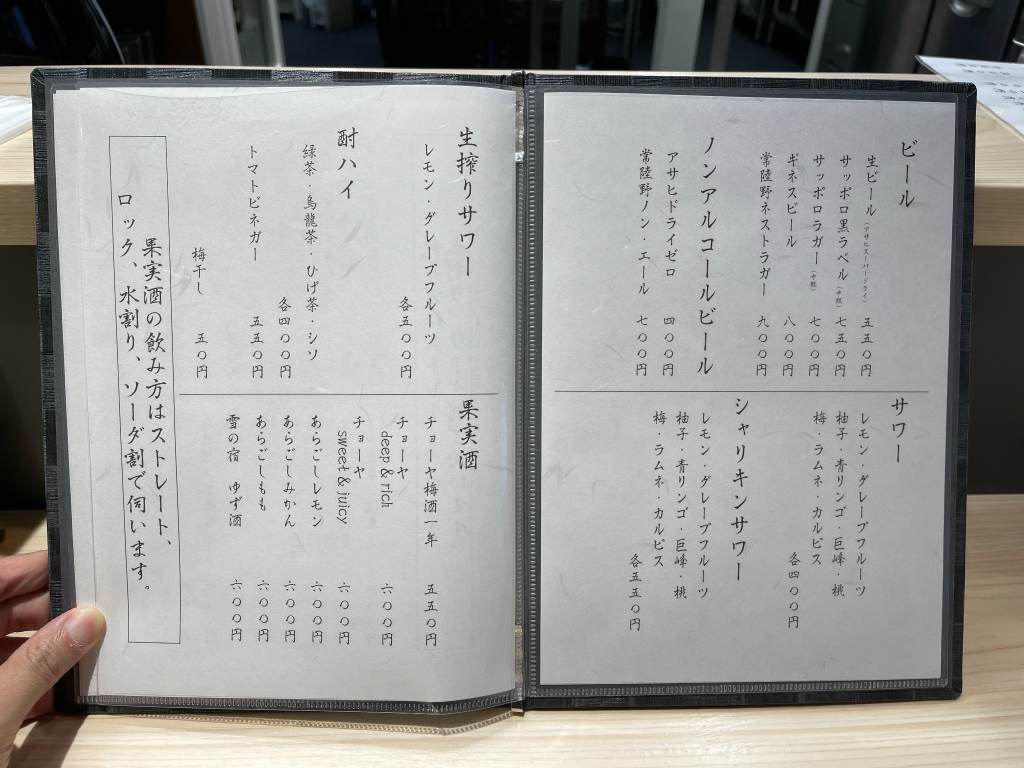 ビール
生ビール（アサヒスーパードライ） 五五〇円
サッポロ黒ラベル（中瓶） 七五〇円
サッポロラガー（中瓶） 七〇〇円
ギネスビール 八〇〇円
常陸野ネストラガー 九〇〇円
ノンアルコールビール
アサヒドライゼロ 四〇〇円
常陸野ノン・エール 七〇〇円
サワー
レモン・グレープフルーツ
柚子・青リンゴ・巨峰・桃
梅・ラムネ・カルピス
各四〇〇円
シャリキンサワー
レモン・グレープフルーツ
柚子・青リンゴ・巨峰・桃
梅・ラムネ・カルピス
各五五〇円
生搾りサワー
レモン・グレープフルーツ
各五〇〇円
酎ハイ
緑茶・烏龍茶・ひげ茶・シソ
各四〇〇円
トマトビネガー 五五〇円
梅干し 五〇〇円
果実酒
チョーヤ梅酒一年 五五〇円
チョーヤ
deep & rich 六〇〇円
チョーヤ
sweet & juicy 六〇〇円
あらごしレモン 六〇〇円
あらごしみかん 六〇〇円
あらごしもも 六〇〇円
雪の宿 ゆず酒 六〇〇円
果実酒の飲み方はストレート、
ロック、水割り、ソーダ割で伺います。